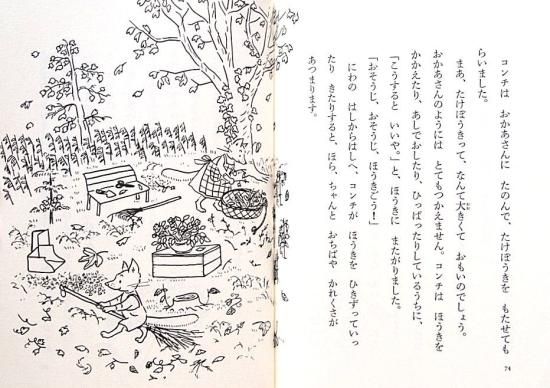 コンチは おかあさんに たのんで、たけぼうきを もたせても
らいました。
まあ、たけぼうきって、なんて大きくて おもいのでしょう。
おかあさんのようには とてもつかえません。コンチは ほうきを
かかえたり、あしでおしたり、ひっぱったりしているうちに、
「こうすると いいや。」と、ほうきに またがりました。
「おそうじ、おそうじ、ほうきごう！」
にわの はしからはしへ、コンチが ほうきを ひきずっていっ
たり きたりすると、ほら、ちゃんと おちばや かれくさが
あつまります。
74